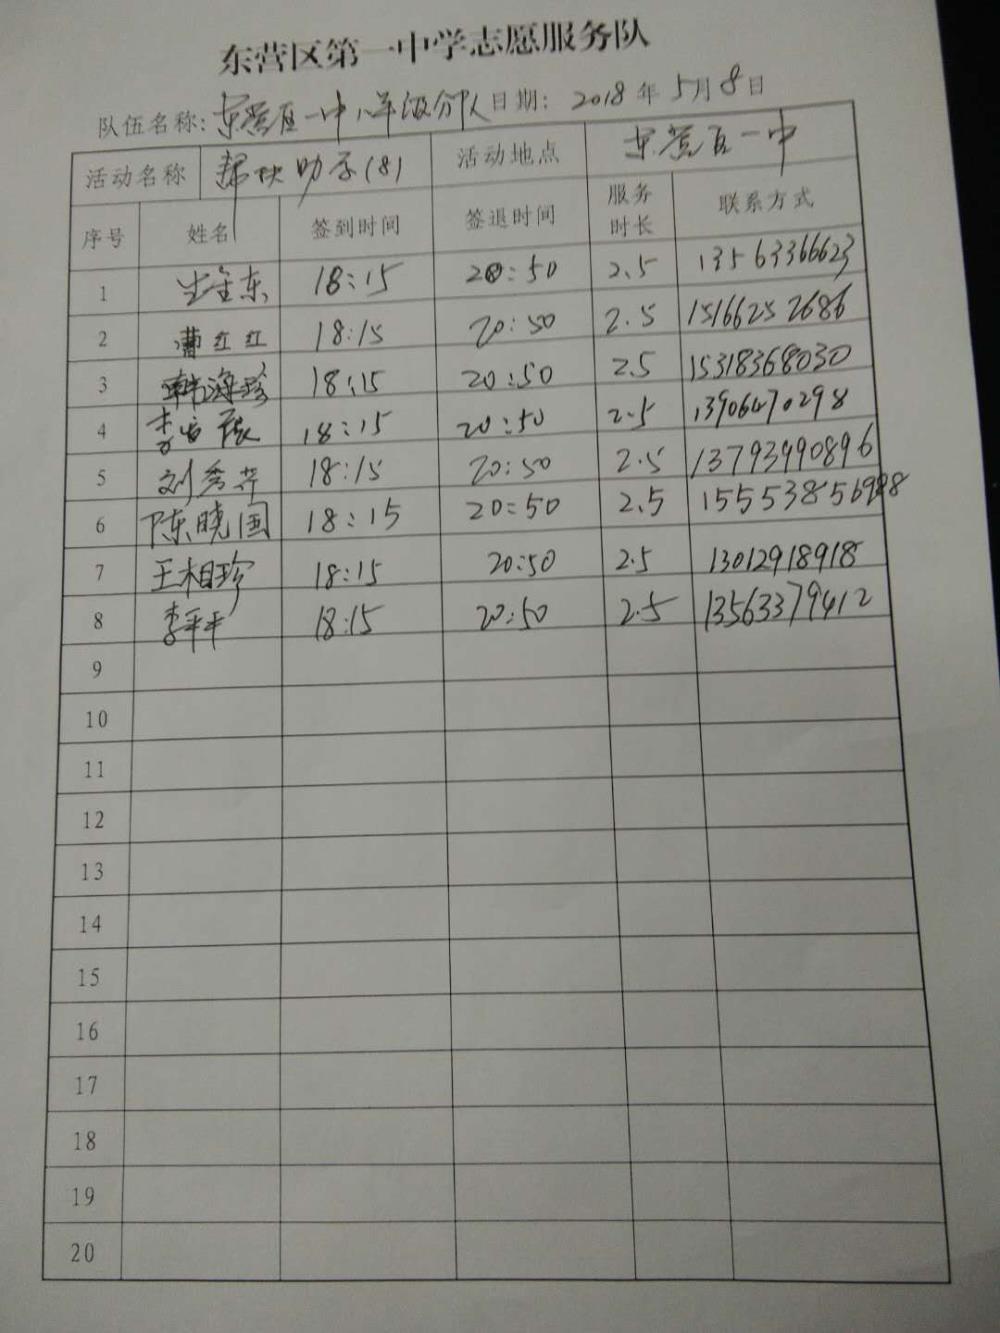 东营区第一中学志愿服务队
队伍名称: 东营区一中八年级分队 日期: 2018年5月8日
活动名称 帮扶助学(8) 活动地点 东营区一中
序号 姓名 签到时间 签退时间 服务时长 联系方式
1 18:15 20:50 2.5 13563366623
2 曹红红 18:15 20:50 2.5 15166252686
3 韩海珍 18:15 20:50 2.5 15318368030
4 18:15 20:50 2.5 13906470298
5 刘秀芹 18:15 20:50 2.5 13793990896
6 陈晓国 18:15 20:50 2.5
7 王相珍 18:15 20:50 2.5 13012918918
8 李平平 18:15 20:50 2.5 13563379412
9
10
11
12
13
14
15
16
17
18
19
20